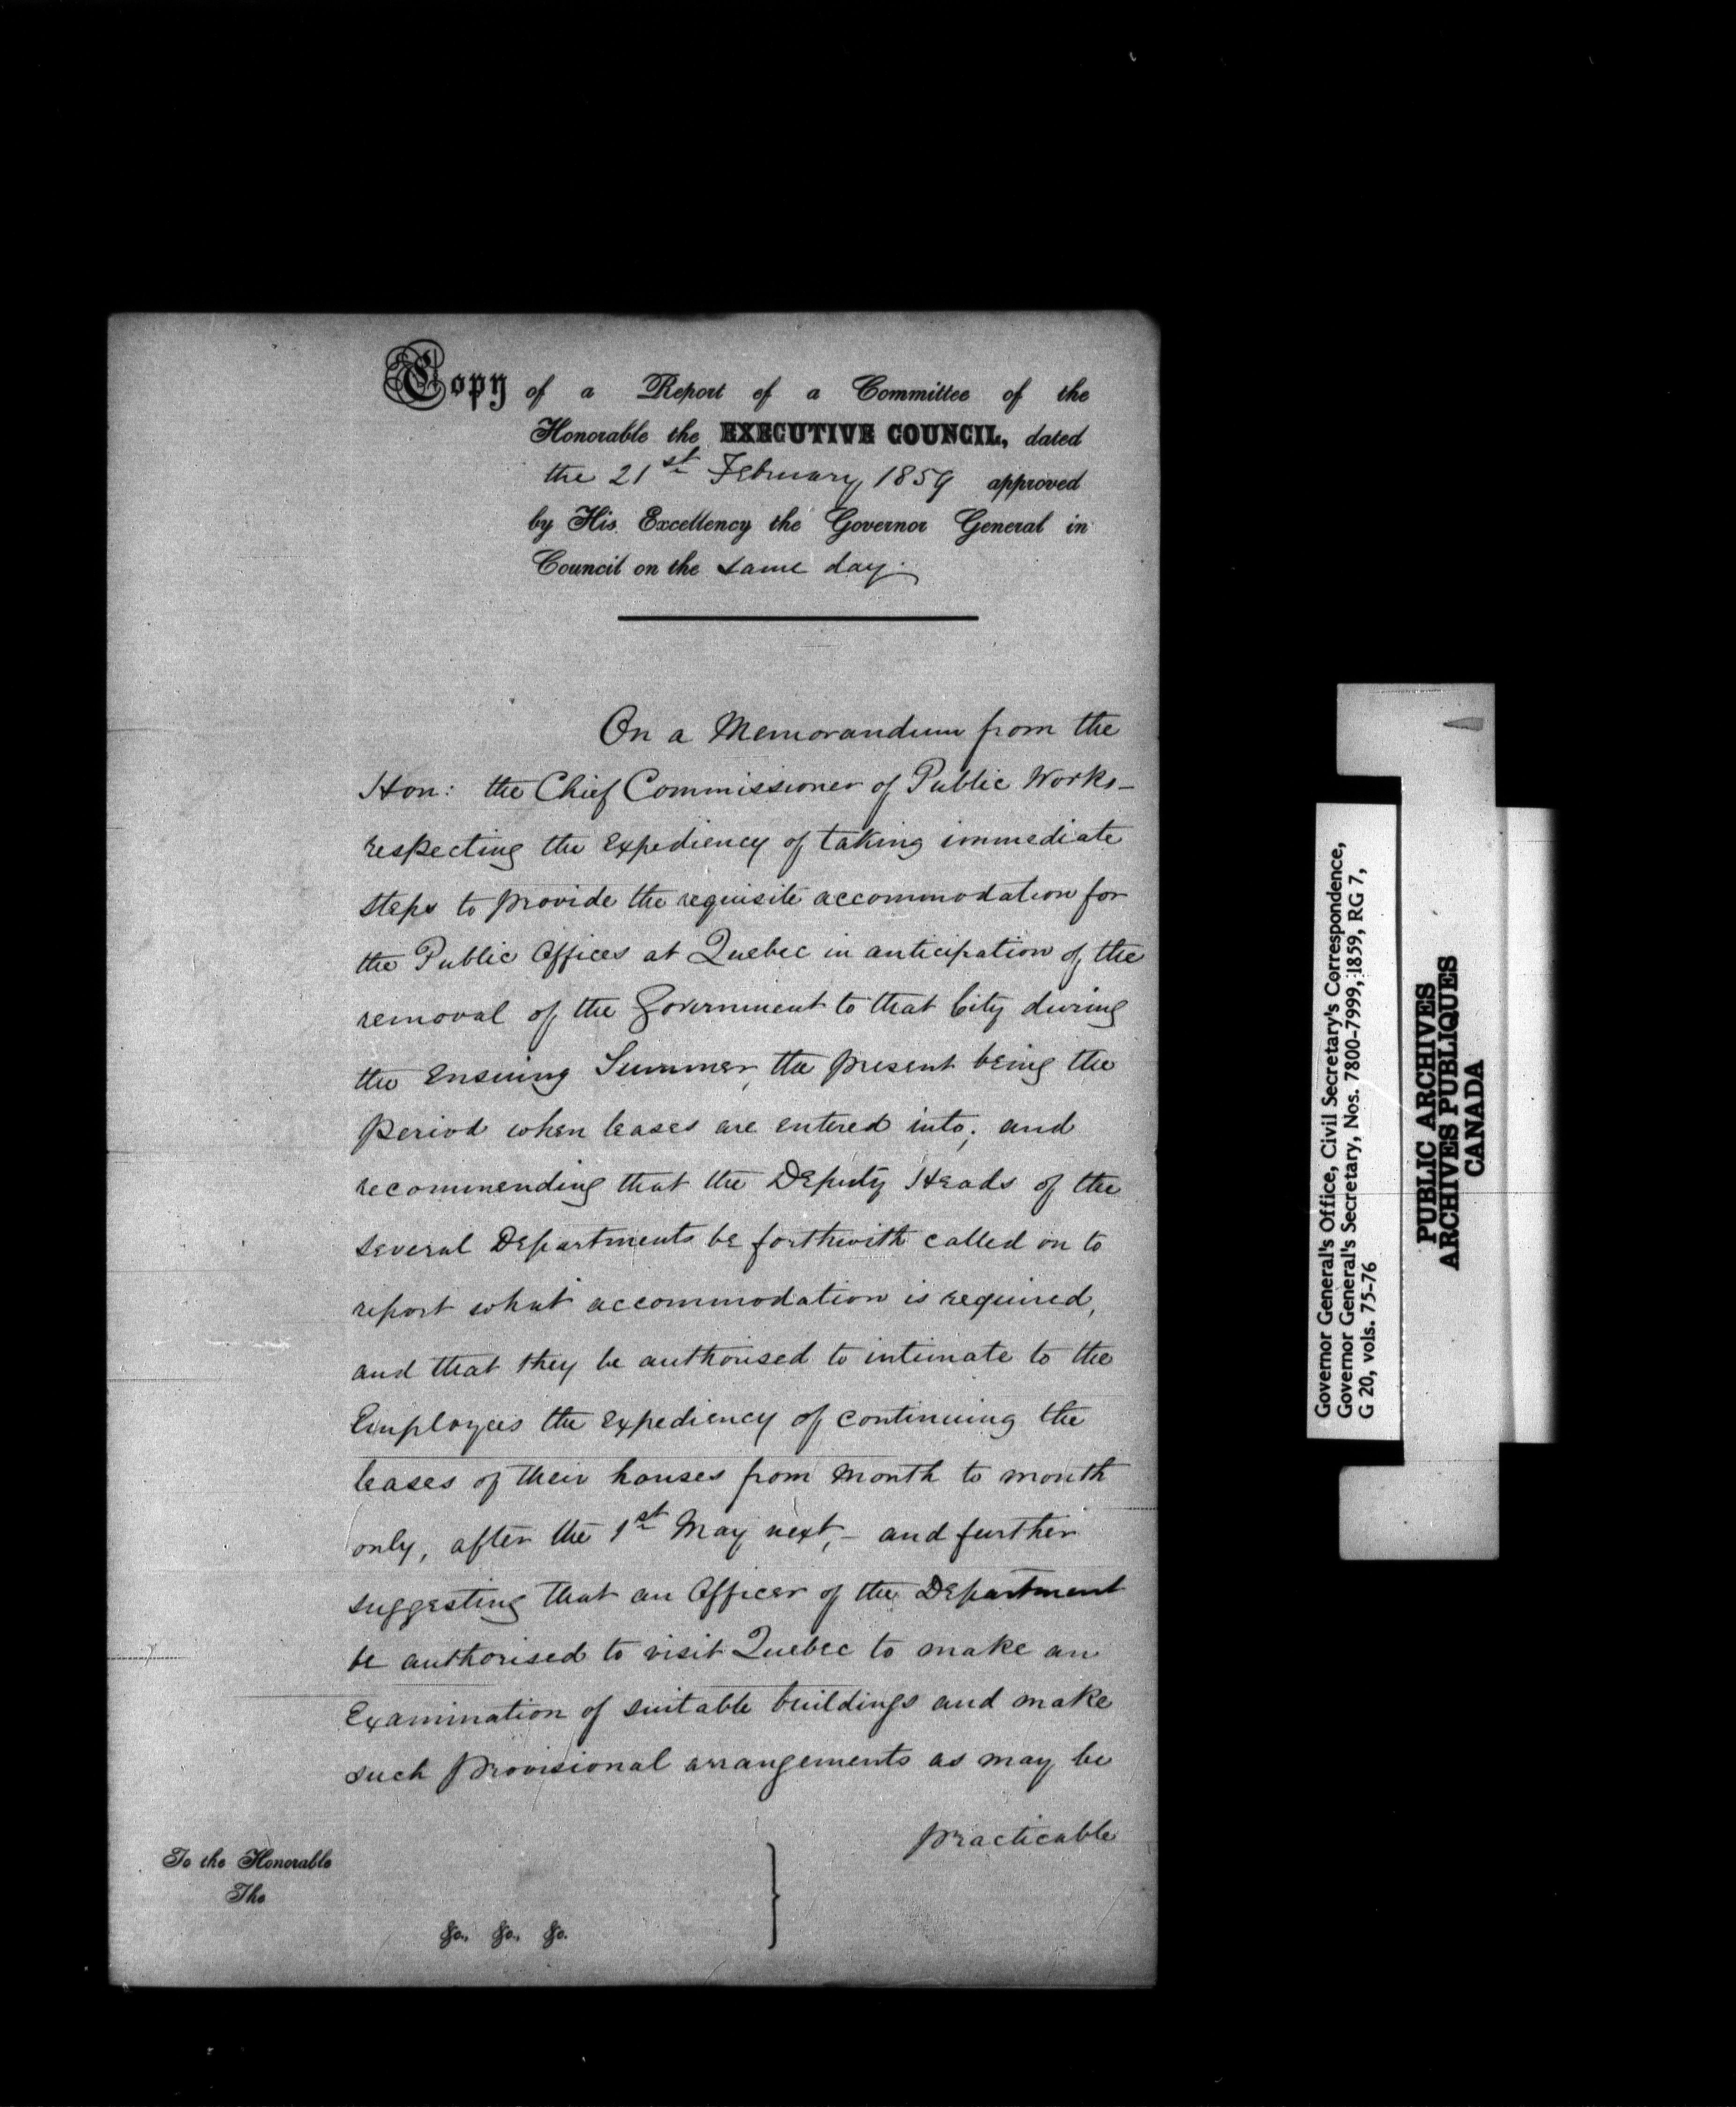 Copy of a Report of a Committee of the
Honorable the EXECUTIVE COUNCIL, dated
the 21st February 1859 approved
by His Excellency the Governor General in
Council on the same day.
On a Memorandum from the
Hon: the Chief Commissioner of Public Works –
respecting the expediency of taking immediate
steps to provide the requisite accommodation for
the Public Offices at Quebec in anticipation of the
removal of the Government to that City during
the ensuing Summer, the present being the
period when leases are entered into; and
recommending that the Deputy Heads of the
several Departments be forthwith called on to
report what accommodation is required,
and that they be authorised to intimate to the
Employees the expediency of continuing the
leases of their houses from month to month
only, after the 1st May next, – and further
suggesting that an Officer of the Department
be authorised to visit Quebec to make an
Examination of suitable buildings and make
such provisional arrangements as may be
practicable
To the Honorable
The
&c., &c., &c.
Governor General's Office, Civil Secretary's Correspondence,
Governor General's Secretary, Nos. 7800-7999, 1859, RG 7,
G 20, vols. 75-76
PUBLIC ARCHIVES
ARCHIVES PUBLIQUES
CANADA